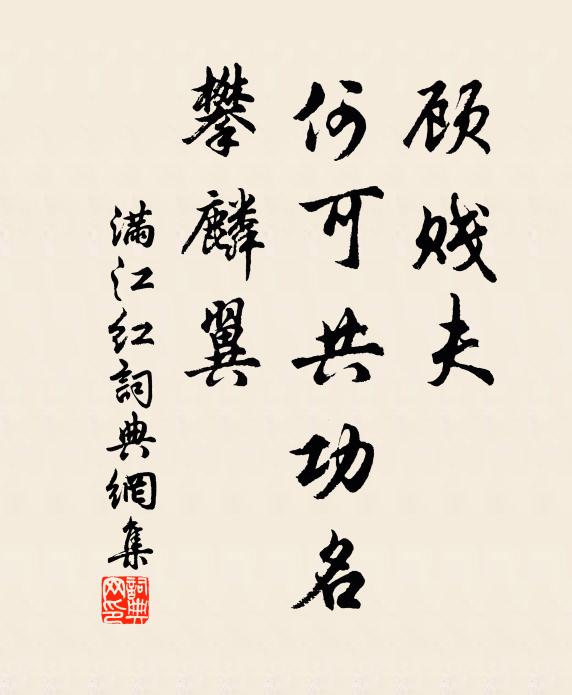 顾贱夫
何可共功名
攀麟翼
满江红詞典網集
詞典网印